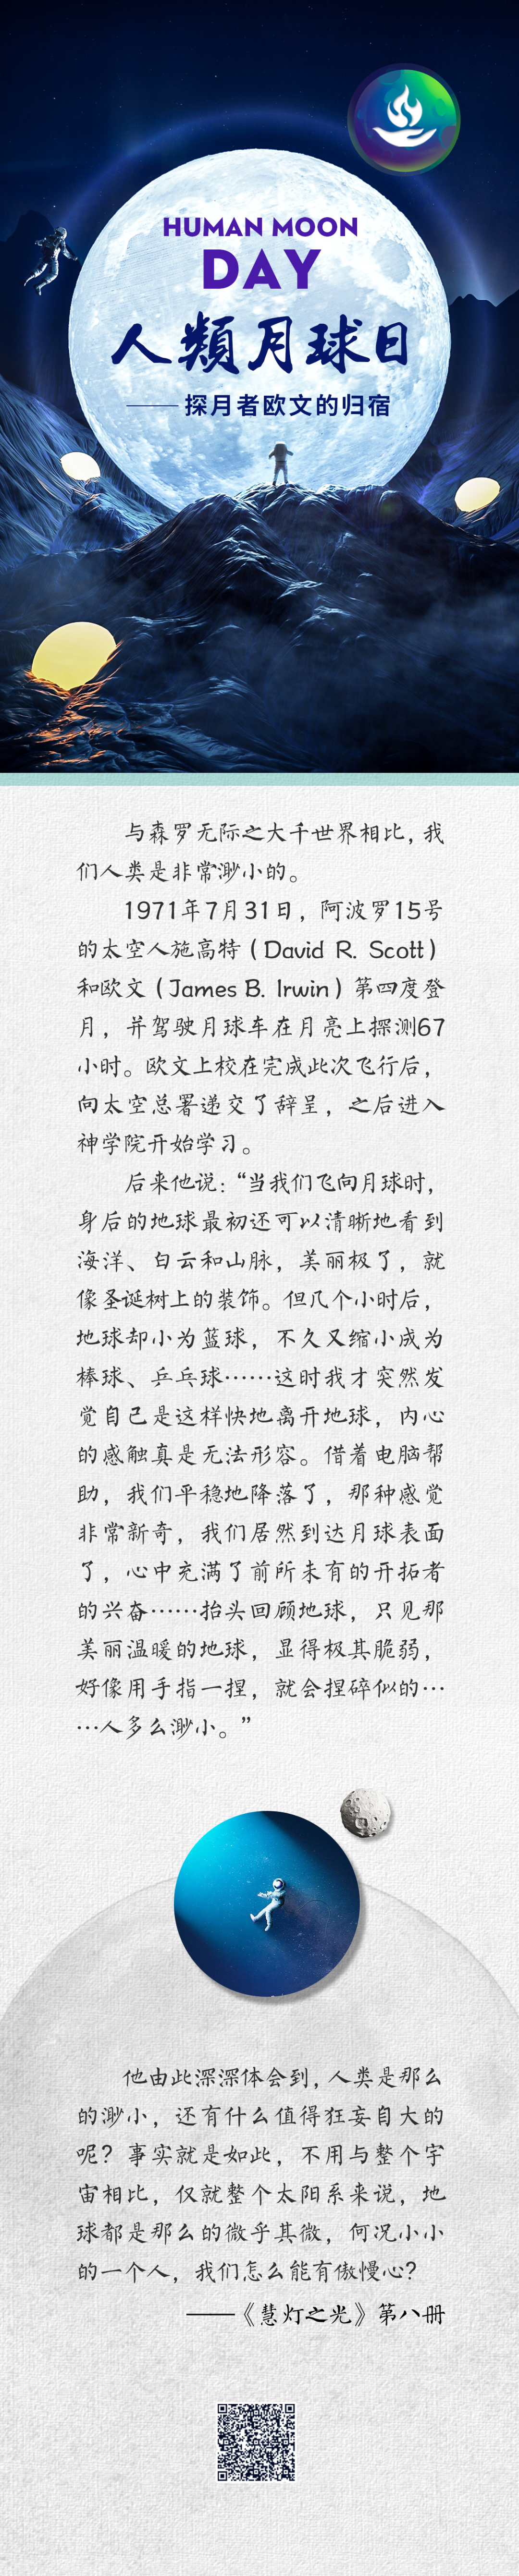 HUMAN MOON
DAY
人類月球日
——探月者欧文的归宿
与森罗无际之大千世界相比，我
们人类是非常渺小的。
1971年7月31日，阿波罗15号
的太空人施高特（David R. Scott）
和欧文（James B. Irwin）第四度登
月，并驾驶月球车在月亮上探测67
小时。欧文上校在完成此次飞行后，
向太空总署递交了辞呈，之后进入
神学院开始学习。
后来他说：“当我们飞向月球时，
身后的地球最初还可以清晰地看到
海洋、白云和山脉，美丽极了，就
像圣诞树上的装饰。但几个小时后，
地球却小为篮球，不久又缩小成为
棒球、乒乓球……这时我才突然发
觉自己是这样快地离开地球，内心
的感触真是无法形容。借着电脑帮
助，我们平稳地降落了，那种感觉
非常新奇，我们居然到达月球表面
了，心中充满了前所未有的开拓者
的兴奋……抬头回顾地球，只见那
美丽温暖的地球，显得极其脆弱，
好像用手指一捏，就会捏碎似的…
…人多么渺小。”
他由此深深体会到，人类是那么
的渺小，还有什么值得狂妄自大的
呢？事实就是如此，不用与整个宇
宙相比，仅就整个太阳系来说，地
球都是那么的微乎其微，何况小小
的一个人，我们怎么能有傲慢心？
——《慧灯之光》第八册